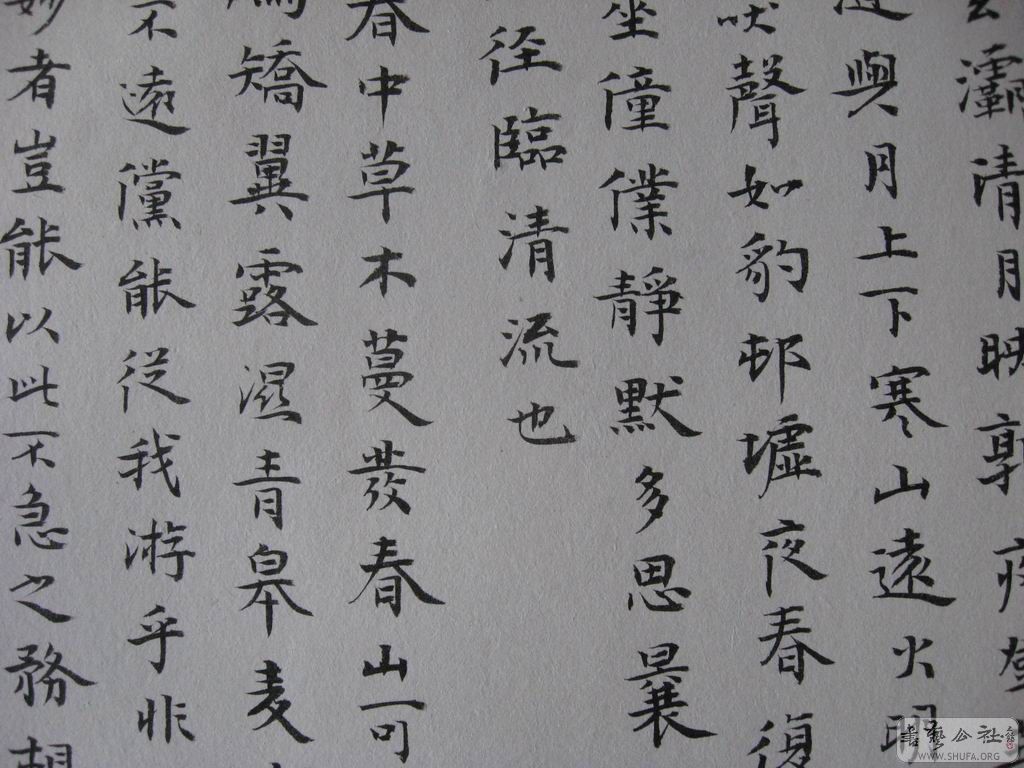 灞清月映郭夜登
與月上下寒山遠火明
吠聲如豹邨墟夜春復
坐僮僕靜默多思曩
徑臨清流也
春中草木蔓發春山可
矯翼露濕青皋麥
不遠儻能從我游乎非
妙者豈能以此不急之務
書藝公社
WWW.SHUFA.ORG